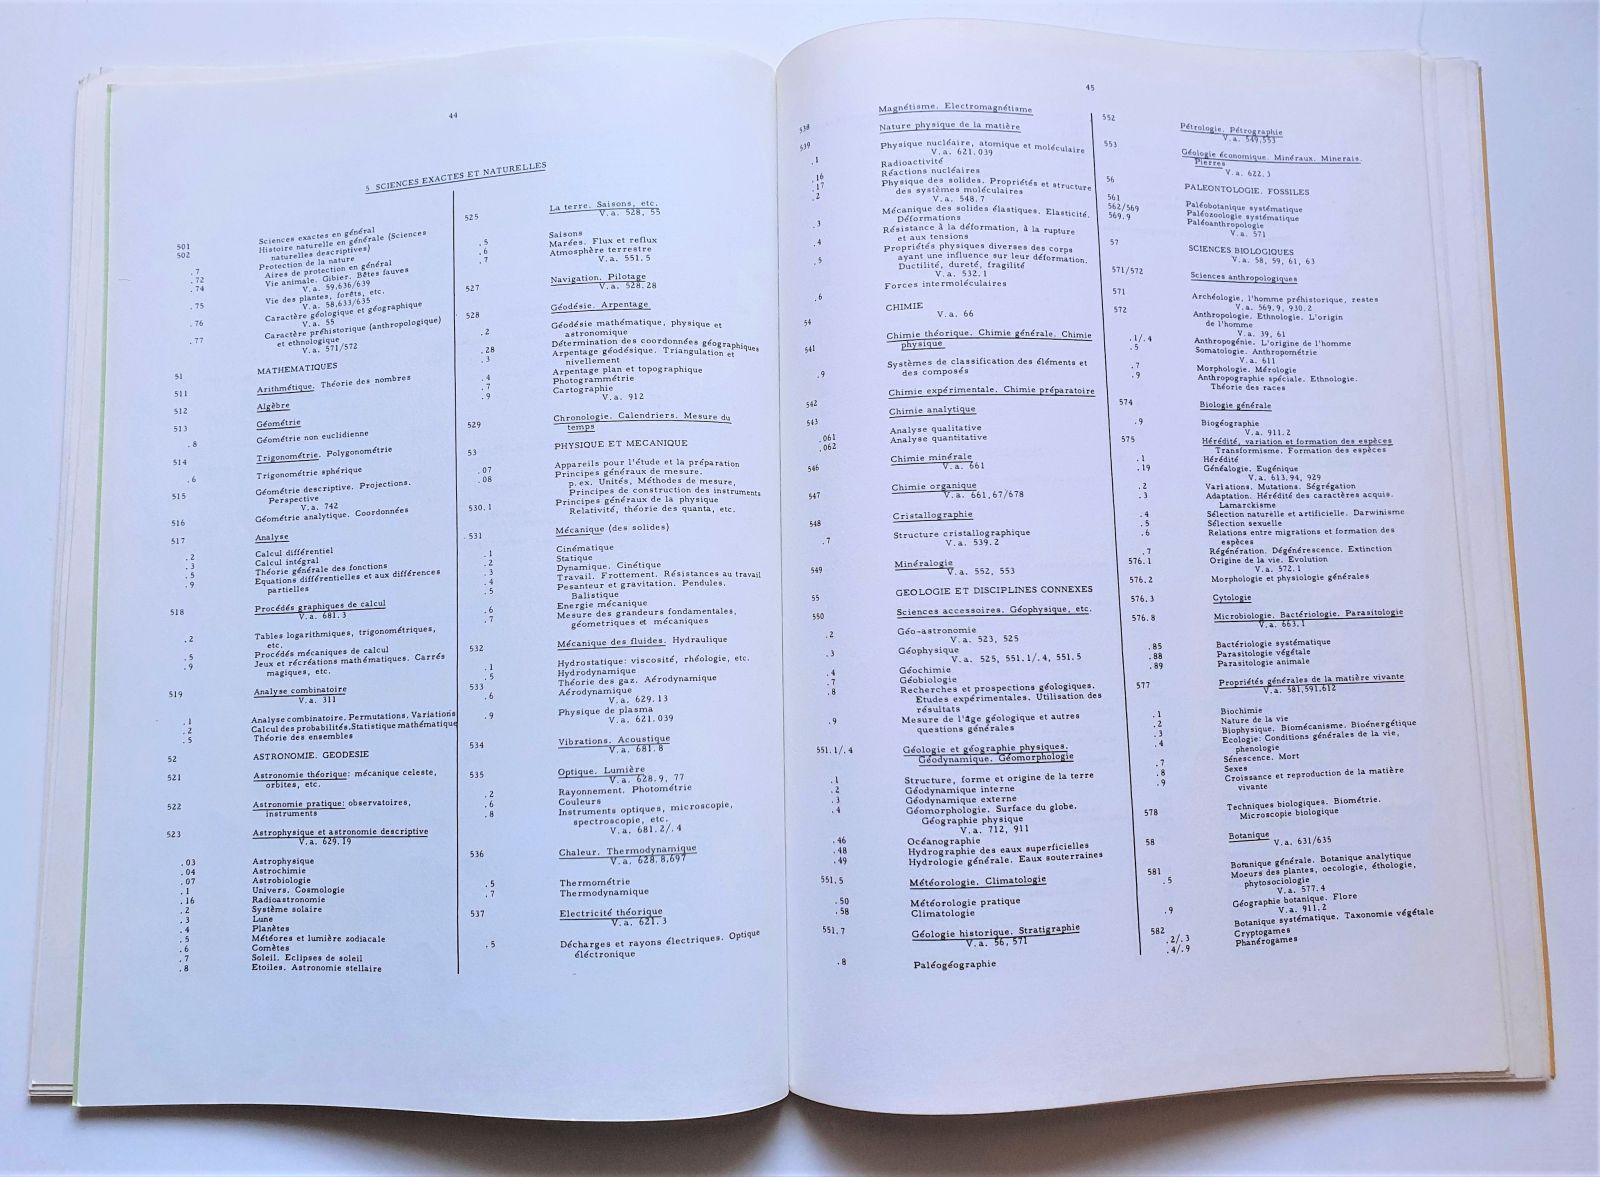 44
5 SCIENCES EXACTES ET NATURELLES
501 Sciences exactes en général
502 Histoire naturelle en générale (Sciences
naturelles descriptives)
.7 Protection de la nature
.72 Aires de protection en général
.74 Vie animale. Gibier. Bêtes fauves
V.a. 59,636/639
.75 Vie des plantes, forêts, etc.
V.a. 58,633/635
.76 Caractère géologique et géographique
V.a. 55
.77 Caractère préhistorique (anthropologique)
et ethnologique
V.a. 571/572
51 MATHEMATIQUES
511 Arithmétique. Théorie des nombres
512 Algèbre
513 Géométrie
.8 Géométrie non euclidienne
514 Trigonométrie. Polygonométrie
.6 Trigonométrie sphérique
515 Géométrie descriptive. Projections.
Perspective
V.a. 742
516 Géométrie analytique. Coordonnées
517 Analyse
.2 Calcul différentiel
.3 Calcul intégral
.5 Théorie générale des fonctions
.9 Equations différentielles et aux différences
partielles
518 Procédés graphiques de calcul
V.a. 681.3
.2 Tables logarithmiques, trigonométriques,
etc.
.5 Procédés mécaniques de calcul
.9 Jeux et récréations mathématiques. Carrés
magiques, etc.
519 Analyse combinatoire
V.a. 311
.1 Analyse combinatoire. Permutations, Variations
.2 Calcul des probabilités, Statistique mathématique
.5 Théorie des ensembles
52 ASTRONOMIE. GEODESIE
521 Astronomie théorique: mécanique celeste,
orbites, etc.
522 Astronomie pratique: observatoires,
instruments
523 Astrophysique et astronomie descriptive
V.a. 629.19
.03 Astrophysique
.04 Astrochimie
.07 Astrobiologie
.1 Univers. Cosmologie
.16 Radioastronomie
.2 Système solaire
.3 Lune
.4 Planètes
.5 Météores et lumière zodiacale
.6 Comètes
.7 Soleil. Eclipses de soleil
.8 Etoiles. Astronomie stellaire
525 La terre. Saisons, etc.
V.a. 528, 55
.5 Saisons
.6 Marées. Flux et reflux
.7 Atmosphère terrestre
V.a. 551.5
527 Navigation. Pilotage
V.a. 528.28
528 Géodésie. Arpentage
.2 Géodésie mathématique, physique et
astronomique
.28 Détermination des coordonnées géographiques
.3 Arpentage géodésique. Triangulation et
nivellement
.4 Arpentage plan et topographique
.7 Photogrammétrie
.9 Cartographie
V.a. 912
529 Chronologie. Calendriers. Mesure du
temps
53 PHYSIQUE ET MECANIQUE
.07 Appareils pour l'étude et la préparation
.08 Principes généraux de mesure.
p.ex. Unités, Méthodes de mesure,
Principes de construction des instruments
530.1 Principes généraux de la physique
Relativité, théorie des quanta, etc.
531 Mécanique (des solides)
.1 Cinématique
.2 Statique
.3 Dynamique. Cinétique
.4 Travail. Frottement. Résistances au travail
.5 Pesanteur et gravitation. Pendules.
Balistique
.6 Energie mécanique
.7 Mesure des grandeurs fondamentales,
géometriques et mécaniques
532 Mécanique des fluides. Hydraulique
.1 Hydrostatique: viscosité, rhéologie, etc.
.5 Hydrodynamique
533 Théorie des gaz. Aérodynamique
.6 Aérodynamique
V.a. 629.13
.9 Physique de plasma
V.a. 621.039
534 Vibrations. Acoustique
V.a. 681.8
535 Optique. Lumière
V.a. 628.9, 77
.2 Rayonnement. Photométrie
.6 Couleurs
.8 Instruments optiques, microscopie,
spectroscopie, etc.
V.a. 681.2/.4
536 Chaleur. Thermodynamique
V.a. 628.8,697
.5 Thermométrie
.7 Thermodynamique
537 Electricité théorique
V.a. 621.3
.5 Décharges et rayons électriques. Optique
électronique
45
538 Magnétisme. Electromagnétisme
539 Nature physique de la matière
.1 Physique nucléaire, atomique et moléculaire
V.a. 621.039
.16 Radioactivité
.17 Réactions nucléaires
.2 Physique des solides. Propriétés et structure
des systèmes moléculaires
V.a. 548.7
.3 Mécanique des solides élastiques. Elasticité.
Déformations
.4 Résistance à la déformation, à la rupture
et aux tensions
.5 Propriétés physiques diverses des corps
ayant une influence sur leur déformation.
Ductilité, dureté, fragilité
V.a. 532.1
.6 Forces intermoléculaires
54 CHIMIE
V.a. 66
541 Chimie théorique. Chimie générale. Chimie
physique
.9 Systèmes de classification des éléments et
des composés
542 Chimie expérimentale. Chimie préparatoire
543 Chimie analytique
.061 Analyse qualitative
.062 Analyse quantitative
546 Chimie minérale
V.a. 661
547 Chimie organique
V.a. 661,67/678
548 Cristallographie
.7 Structure cristallographique
V.a. 539.2
549 Minéralogie
V.a. 552, 553
55 GEOLOGIE ET DISCIPLINES CONNEXES
550 Sciences accessoires. Géophysique, etc.
.2 Géo-astronomie
V.a. 523, 525
.3 Géophysique
V.a. 525, 551.1/.4, 551.5
.4 Géochimie
.7 Géobiologie
.8 Recherches et prospections géologiques.
Etudes expérimentales. Utilisation des
résultats
.9 Mesure de l'âge géologique et autres
questions générales
551.1/.4 Géologie et géographie physiques.
Géodynamique. Géomorphologie
.1 Structure, forme et origine de la terre
.2 Géodynamique interne
.3 Géodynamique externe
.4 Géomorphologie. Surface du globe.
Géographie physique
V.a. 712, 911
.46 Océanographie
.48 Hydrographie des eaux superficielles
.49 Hydrologie générale. Eaux souterraines
551.5 Météorologie. Climatologie
.50 Météorologie pratique
.58 Climatologie
551.7 Géologie historique. Stratigraphie
V.a. 56, 571
.8 Paléogéographie
552 Pétrologie. Pétrographie
V.a. 549,553
553 Géologie économique. Minéraux. Minerais.
Pierres
V.a. 622.3
56 PALEONTOLOGIE. FOSSILES
561 Paléobotanique systématique
562/569 Paléozoologie systématique
569.9 Paléoanthropologie
V.a. 571
57 SCIENCES BIOLOGIQUES
V.a. 58, 59, 61, 63
571/572 Sciences anthropologiques
571 Archéologie, l'homme préhistorique, restes
V.a. 569.9, 930.2
572 Anthropologie. Ethnologie. L'origin
de l'homme
V.a. 39, 61
.1/.4 Anthropogénie. L'origine de l'homme
.5 Somatologie. Anthropométrie
V.a. 611
.7 Morphologie. Mérologie
.9 Anthropographie spéciale. Ethnologie.
Théorie des races
574 Biologie générale
.9 Biogéographie
V.a. 911.2
575 Hérédité, variation et formation des espèces
Transformisme. Formation des espèces
.1 Hérédité
.19 Généalogie. Eugénique
V.a. 613.94, 929
.2 Variations. Mutations. Ségrégation
.3 Adaptation. Hérédité des caractères acquis.
Lamarckisme
.4 Sélection naturelle et artificielle. Darwinisme
.5 Sélection sexuelle
.6 Relations entre migrations et formation des
espèces
.7 Régénération. Dégénérescence. Extinction
576.1 Origine de la vie. Evolution
V.a. 572.1
576.2 Morphologie et physiologie générales
576.3 Cytologie
576.8 Microbiologie. Bactériologie. Parasitologie
V.a. 663.1
.85 Bactériologie systématique
.88 Parasitologie végétale
.89 Parasitologie animale
577 Propriétés générales de la matière vivante
V.a. 581,591,612
.1 Biochimie
.2 Nature de la vie
.3 Biophysique. Biomécanisme. Bioénergétique
.4 Ecologie: Conditions générales de la vie,
phenologie
.7 Sénescence. Mort
.8 Sexes
.9 Croissance et reproduction de la matière
vivante
578 Techniques biologiques. Biométrie.
Microscopie biologique
58 Botanique
V.a. 631/635
581 Botanique générale. Botanique analytique
.5 Moeurs des plantes, oecologie, éthologie,
phytosociologie
V.a. 577.4
.9 Géographie botanique. Flore
V.a. 911.2
582 Botanique systématique. Taxonomie végétale
.2/.3 Cryptogames
.4/.9 Phanérogames